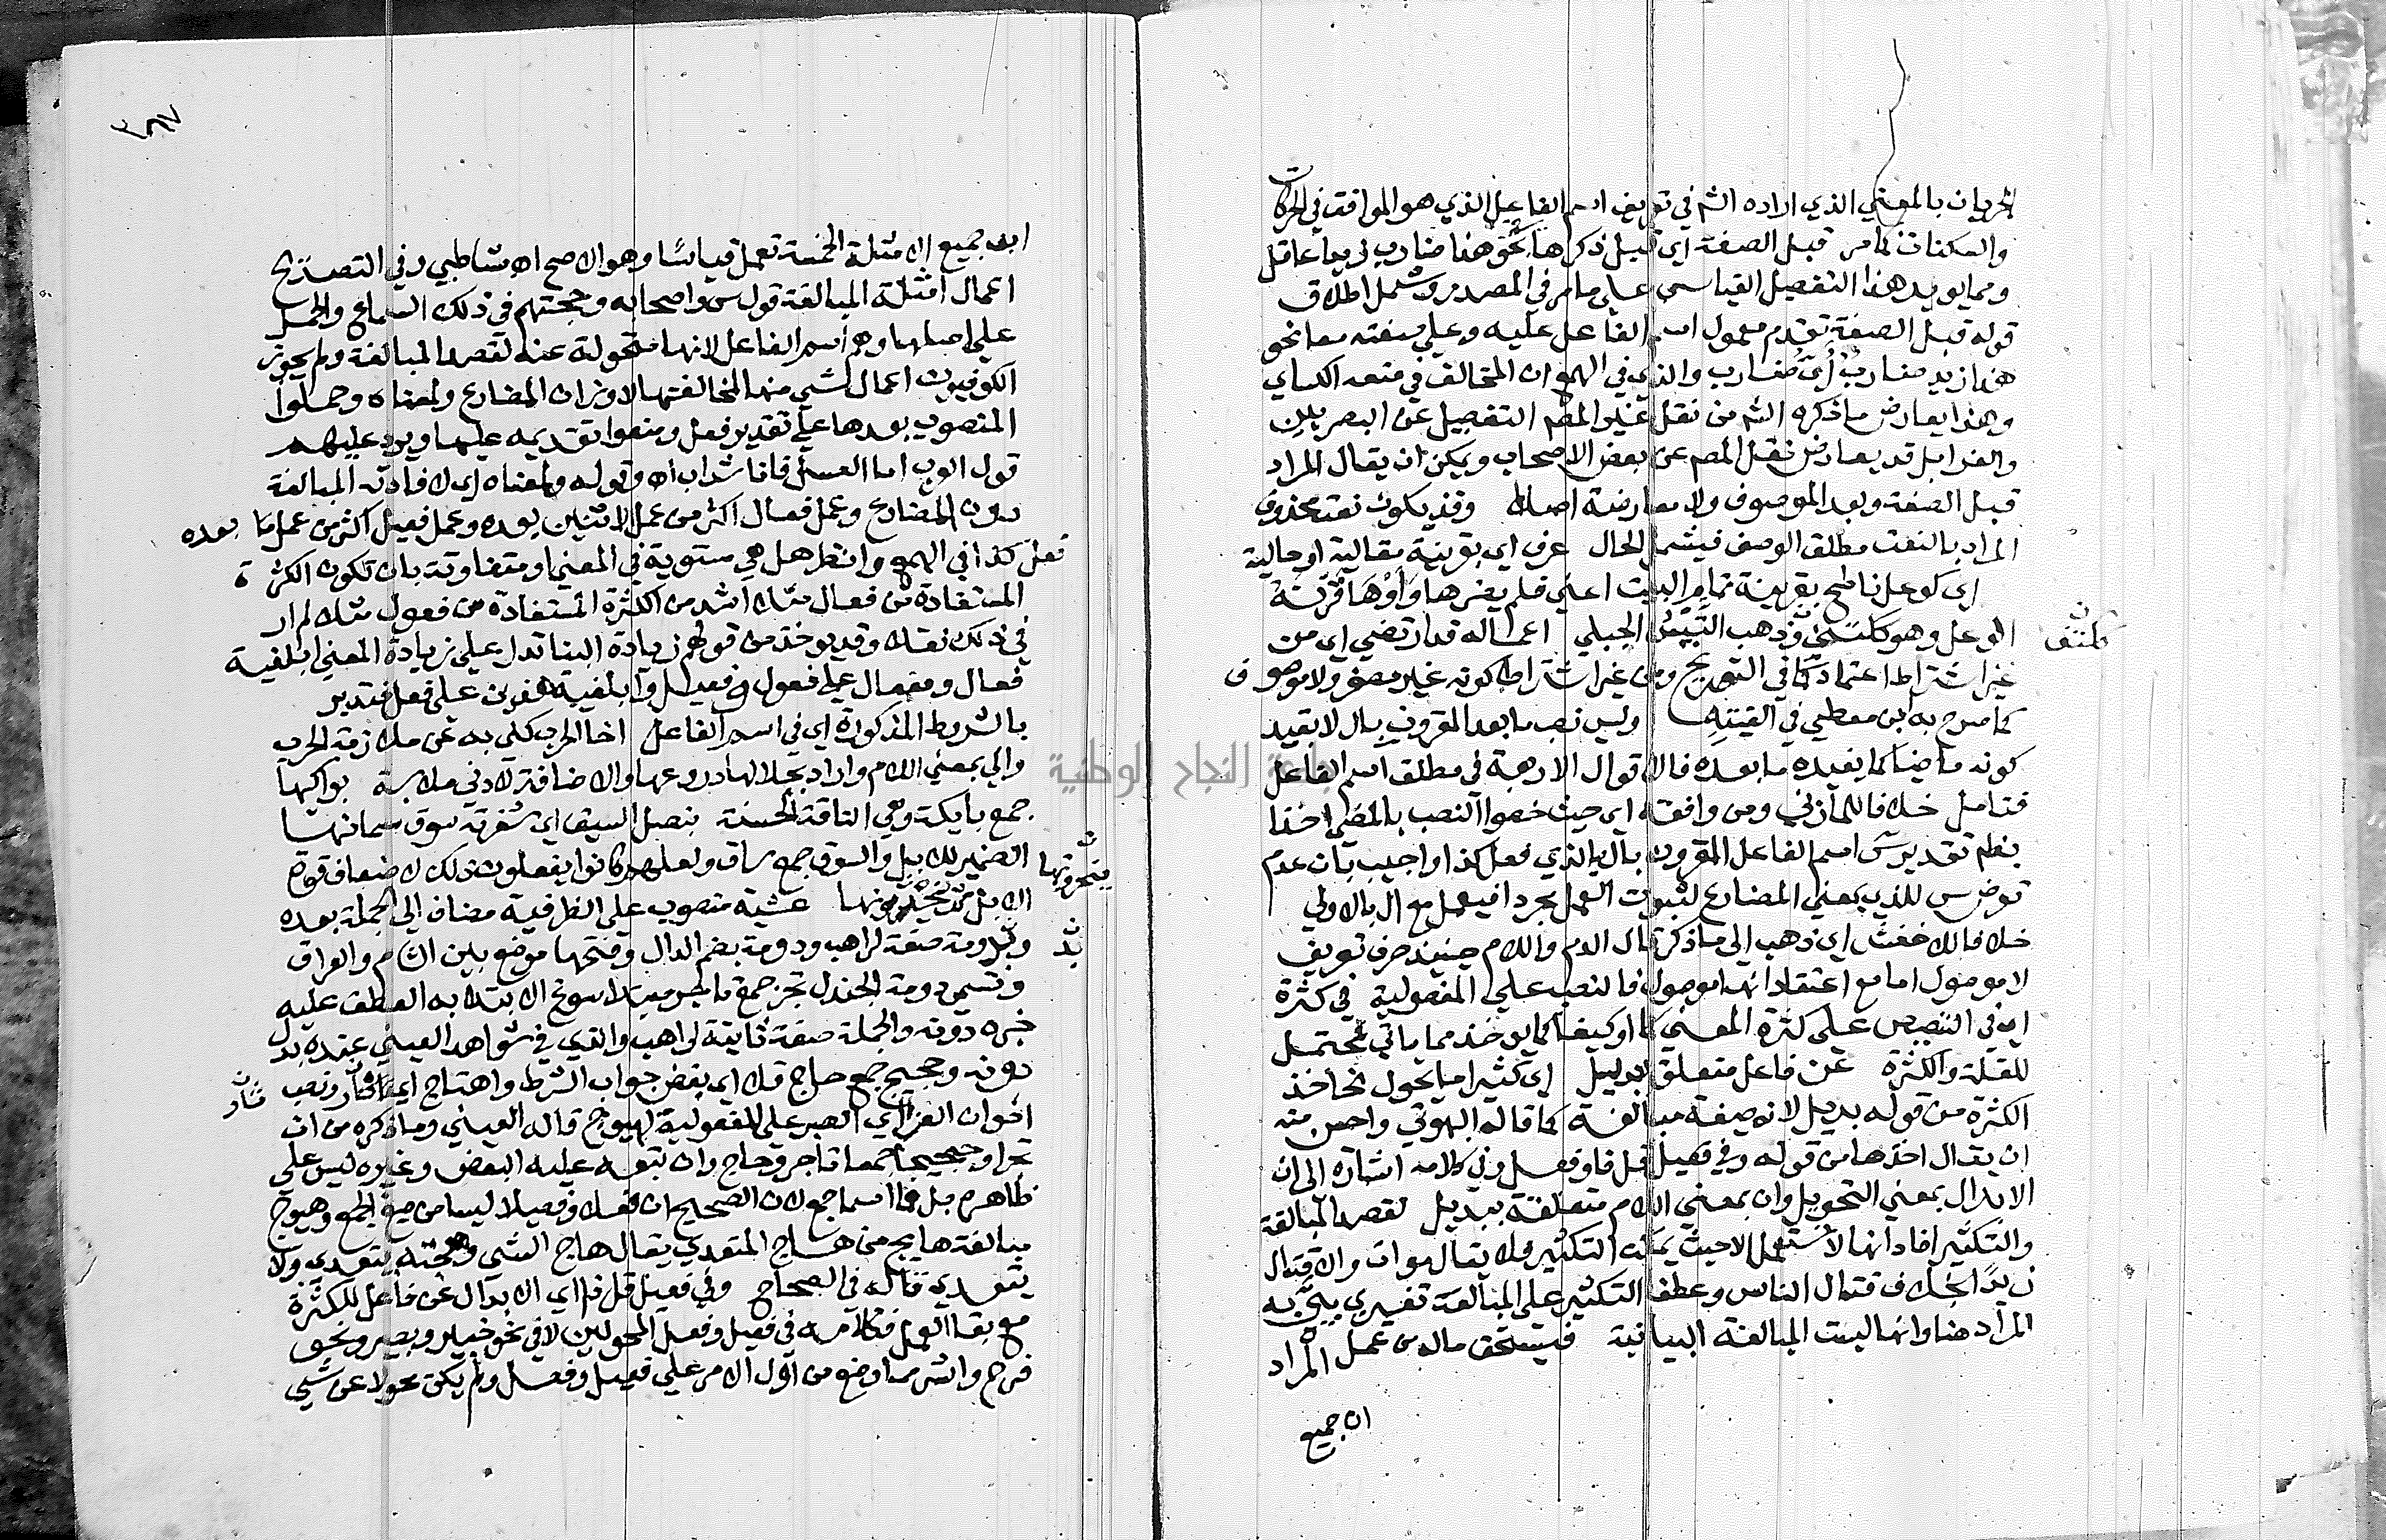 الجريان بالمعني الذي اراده الشم في تعريف اسم الفاعل الذي هو الموافقة في الحركات
والسكنات كما مر قبل الصفة اي قبل ذكرها نحو هذا ضارب زيدا عاقل
ومما يويد هذا التفصيل القياس علي ما مر في المصدر وشمل اطلاق
قوله قبل الصفة تقدم معمول اسم الفاعل عليه وعلي صفته معا نحو
هذا زيدا ضارب اي ضارب والذي في الهمع ان المخالف في منعه الكساي
وهذا يعارض ما ذكره الشم من نقل غير المصم التفصيل عن البصريين
والفرا بل قد يعارض نقل المصم عن بعض الاصحاب ويمكن ان يقال المراد
قبل الصفة وبعد الموصوف ولا معارضة اصلا وقد يكون نعت محذوف
المراد بالنعت مطلق الوصف فيشمل الحال عرف اي بقرينة مقالية او حالية
اي كوعل ناطح بقرينة تمام البيت اعني فلم يضرها واوهي قرنه
الوعل وهو ككتف وذهب التيس الجبلي اعماله قد ارتضي اي من
كتف
غير اشتراط اعتماد كما في التصريح ومن غير اشتراط كونه غير مصغر ولا موصوف
كما صرح به ابن معطي في الفيته وليس نصب ما بعد المقرون بال لا بقيد
كونه ماضيا كما يفيده ما بعده فالاقوال الاربعة في مطلق اسم الفاعل
فتامل خلافا للمازني ومن وافقه اي حيث خصوا النصب بالمضي اخذا
بظم تقدير س اسم الفاعل المقرون بال بالذي فعل كذا واجيب بان عدم
توض س للذي بمعني المضارع لثبوت العمل مجردا فيعمل مع ال بالاولي
خلافا للاخفش اي ذهب الي ما ذكر قال الدم واللام حينيذ حرف تعريف
لا موصول اما مع اعتقاد انها موصول فالنصب علي المفعولية في كثرة
اي في التنصيص علي كثرة المعني كما او كيفا كما يوخذ مما ياتي محتمل
للقلة والكثرة عن فاعل متعلق ببديل اي كثيرا ما يحول
الكثرة من قوله بديل لانه صيغة مبالغة كما قاله البهوتي واحسن منه
ان يقال اخذها من قوله وفي فعيل قل ذا وفعل وفي كلامه اشارة الي ان
الابدال بمعني التحويل وان بمعني اللام متعلقة ببديل لقصد المبالغة
والتكثير افاد انها لا تستعمل الا حيث يمكن التكثير فلا يقال موات ولا قتال
زيدا بخلاف قتال الناس وعطف التكثير علي المبالغة تفسيري بين به
المراد هنا وانها ليست المبالغة البيانية فيستحق ماله من عمل المراد
ان جميع
٣٨٧
ان جميع الامثلة الخمسة تعمل قياسا وهو الاصح اه شاطبي وفي التصريح
اعمال امثلة المبالغة قول س واصحابه وحجتهم في ذلك السماع والحمل
علي اصلها وهو اسم الفاعل لانها متحولة عنه لقصد المبالغة ولم يجوز
الكوفيون اعمال شي منها لمخالفتها لاوزان المضارع ولمعناه وحملوا
المنصوب بعدها علي تقدير فعل ومنعوا تقديمه عليها ويرد عليهم
قول العرب اما العسل فانا شراب اه وقوله ولمعناه اي لافادته المبالغة
دون المضارع وعمل فعال اكثر من عمل الاثنين بعده وعمل فعيل اكثر من عمل ما بعده
فعل كذا في الهمع وانظر هل هي مستوية في المعني او متفاوتة بان تكون الكثرة
المستفادة من فعال مثلا اشد من الكثرة المستفادة من فعول مثلا لم ار
في ذلك نقلا وقد يوخذ من قولهم زيادة البنا تدل علي زيادة المعني ابلغية
فعال ومفعال علي فعول وفعيل وابلغية هذين علي فعل فتدبر
بالشروط المذكورة اي في اسم الفاعل اخا الحرب كني به عن ملازمة الحرب
والي بمعني اللام واراد بجلالها دروعها والاضافة لادني ملابسة بوايكها
جمع بايكة وهي الناقة الحسنة بنصل السيف اي شفرته سوق سمانها
الضمير للابل والسوق جمع ساق ولعلهم كانوا يفعلون ذلك لاضعاف قوة
الابل ثم ينحرونها عشية منصوب علي الظرفية مضاف الي الجملة بعده
ينحرونها
وبدومة صفة لراهب ودومة بضم الدال وفتحها موضع بين الشام والعراق
وتسمي دومة الجندل تجر جمع
خبره دونه والجملة صفة ثانية لراهب والذي في شواهد العيني عنده بدل
دونه وحجيج جمع حاج قلا اي بغض جواب الشرط واهتاج اي ثار ونصب
ثار
اخوان العزا اي الصبر علي المفعولية لهيوج قاله العيني وما ذكره من ان
تجرا وحجيجا جمعا تاجر وحاج وان تبعه عليه البعض وغيره ليس علي
ظاهره بل هما اسما جمع لان الصحيح ان فعلا وفعيلا ليسا من صيغ الجمع وهيوج
مبالغة هايج من هاج المتعدي يقال هاج الشي وهجته يتعدي ولا
يتعدي قاله في الصحاح وفي فعيل قل ذا اي الابدال عن فاعل للكثرة
مع بقا العمل فكلامه في فعيل وفعل المحولين لا في نحو خبير وبصير ونحو
فرح واشر مما وضع من اول الامر علي فعيل وفعل ولم يكن محولا عن شي